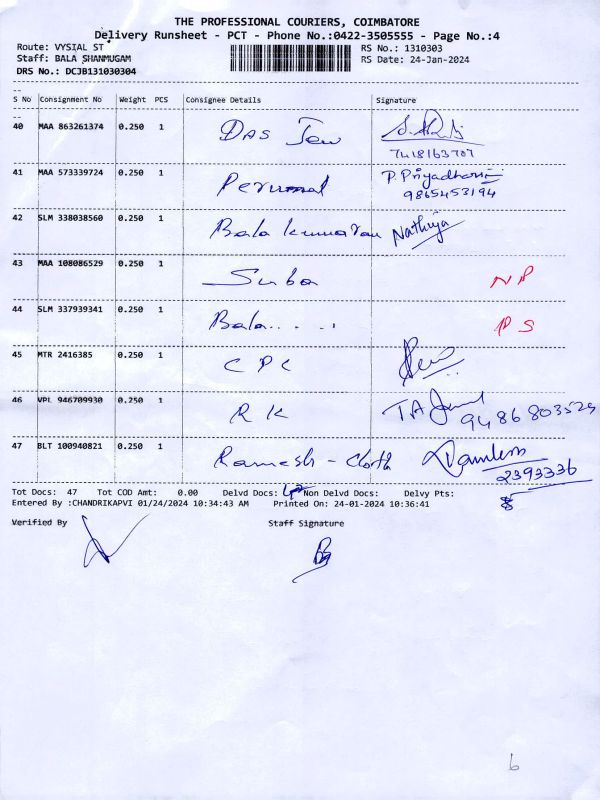 THE PROFESSIONAL COURIERS, COIMBATORE
Delivery Runsheet - PCT - Phone No.:0422-3505555 - Page No.:4
Route: VYSIAL ST RS No.: 1310303
Staff: BALA SHANMUGAM RS Date: 24-Jan-2024
DRS No.: DCJB131030304
S No Consignment No Weight PCS Consignee Details Signature
40 MAA 863261374 0.250 1 Das Jew
7418163707
41 MAA 573339724 0.250 1 Perumal P. Priyadharsini
9865453194
42 SLM 338038560 0.250 1 Bala Kumaran Nathiya
43 MAA 108086529 0.250 1 Suba NP
44 SLM 337939341 0.250 1 Bala..... PS
45 MTR 2416385 0.250 1 CPC
46 VPL 946709930 0.250 1 RK
9486803529
47 BLT 100940821 0.250 1 Ramesh - Cloth
2393336
Tot Docs: 47 Tot COD Amt: 0.00 Delvd Docs: Non Delvd Docs: Delvy Pts:
Entered By :CHANDRIKAPVI 01/24/2024 10:34:43 AM Printed On: 24-01-2024 10:36:41
Verified By Staff Signature
6